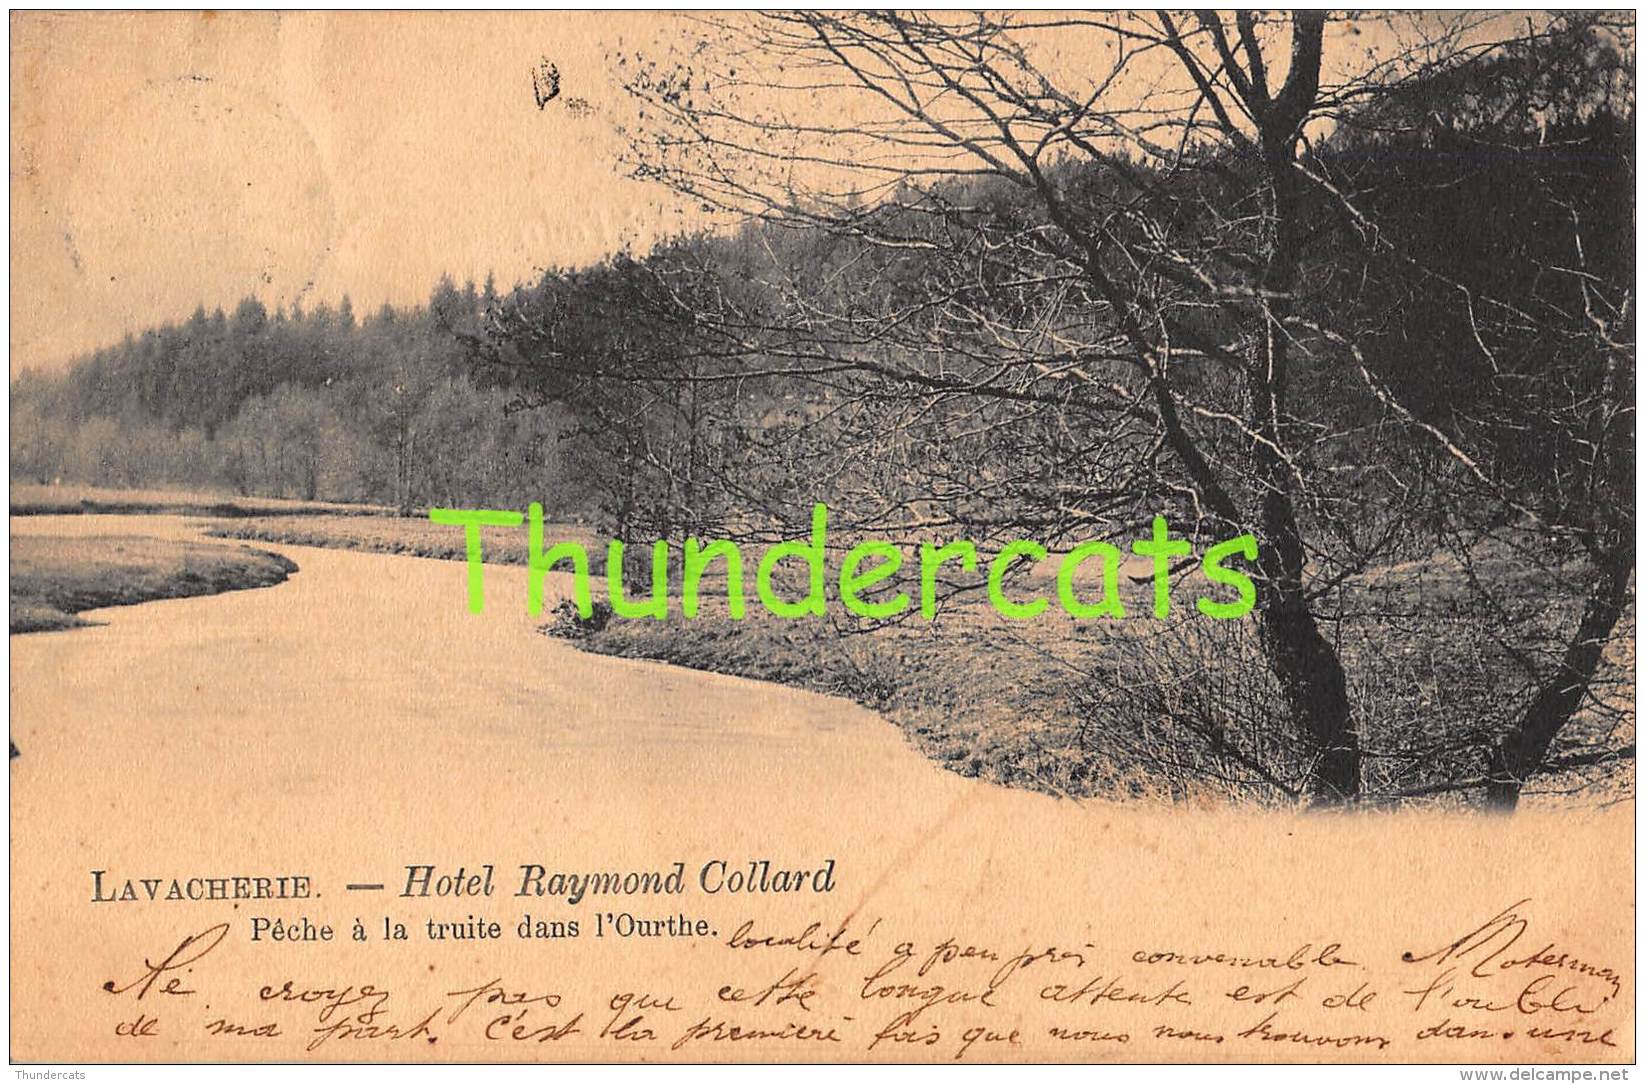 Thundercats
LAVACHERIE. — Hotel Raymond Collard
Pêche à la truite dans l'Ourthe.
localité a peu près convenable. Moterman
Ne croyez pas que cette longue attente est de l'oubli
de ma part. C'est la premiere fois que nous nous trouvons dans une
Thundercats
www.delcampe.net